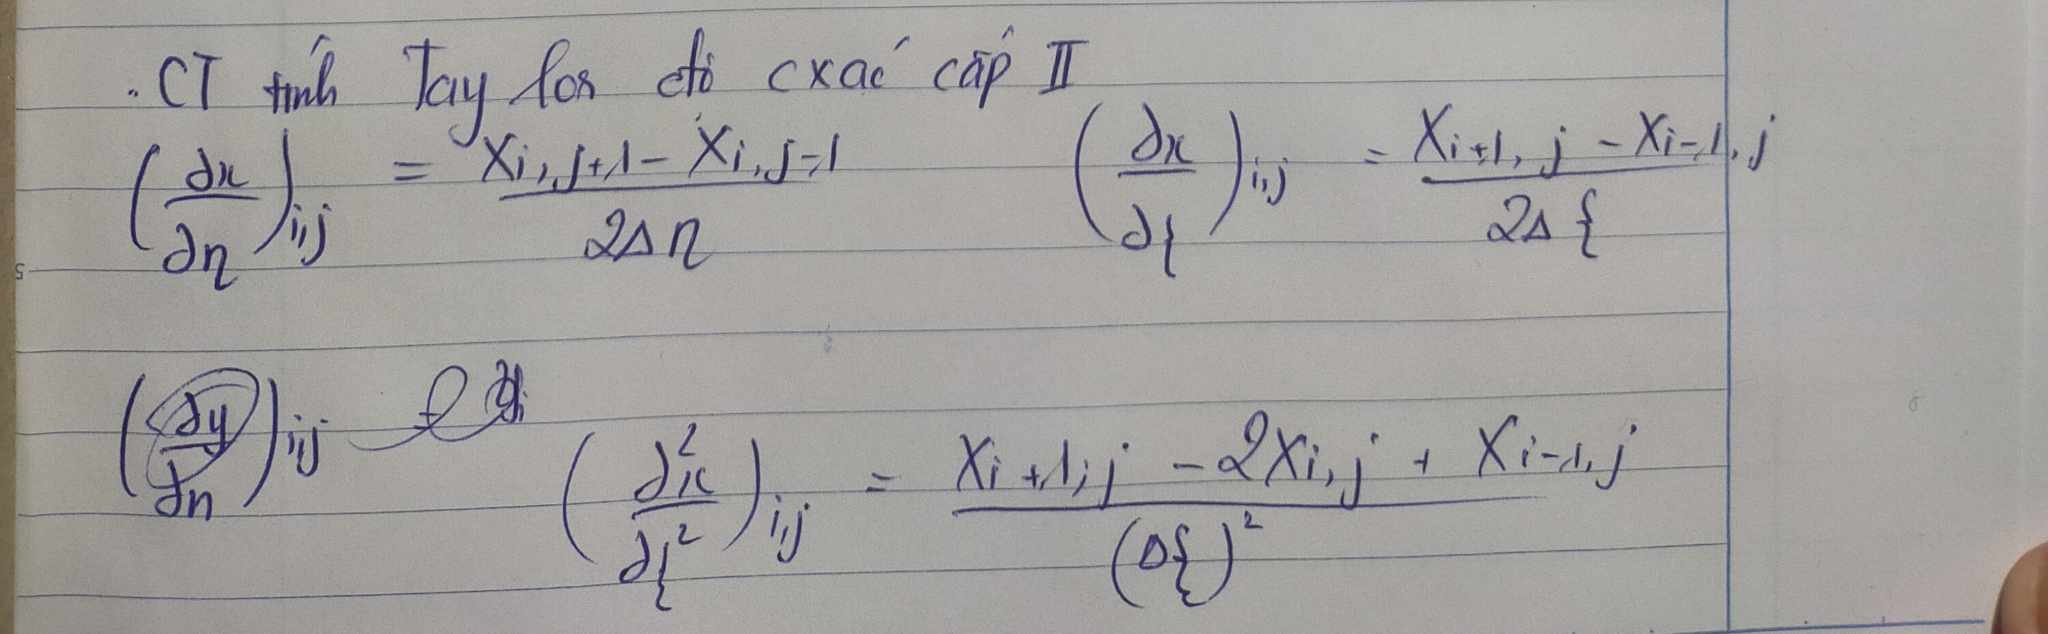 . CT tính Taylor độ cxác cấp II
(∂x/∂η)i,j = Xi,j+1 - Xi,j-1 / 2Δη (∂x/∂ξ)i,j = Xi+1,j - Xi-1,j / 2Δξ
(∂y/∂η)i,j
(∂²x/∂ξ²)i,j = Xi+1,j - 2Xi,j + Xi-1,j / (Δξ)²